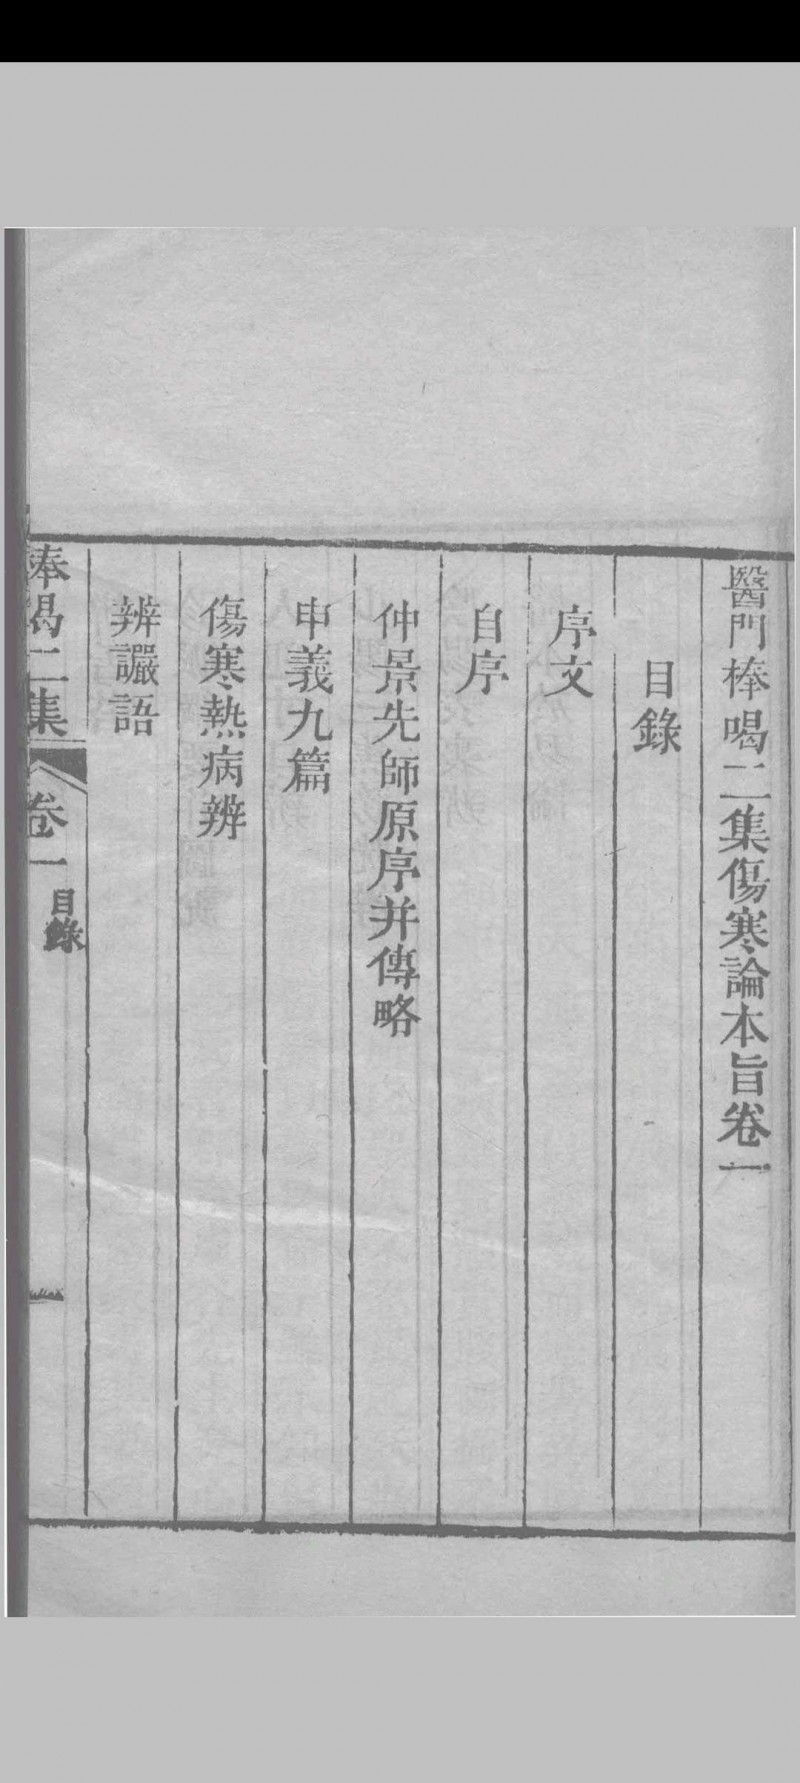 醫門棒喝二集傷寒論本旨卷一
目錄
序文
自序
仲景先師原序并傳略
申義九篇
傷寒熱病辨
辨讝語
棒喝二集
卷一
目錄